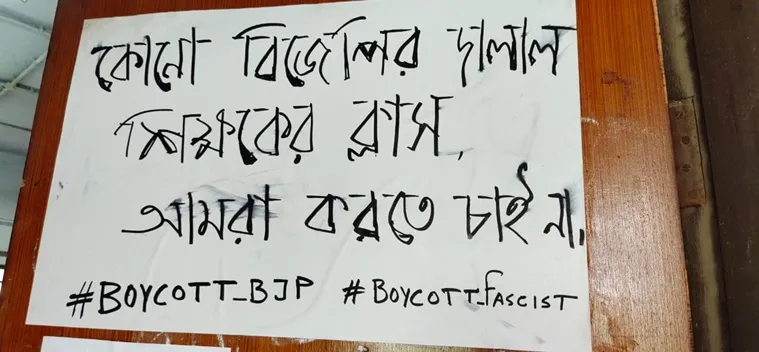 কোনো বিজেপির দালাল
শিক্ষকের ক্লাস,
আমরা করতে চাই না,
#BOYCOTT_BJP #BOYCOTT_fASCIST